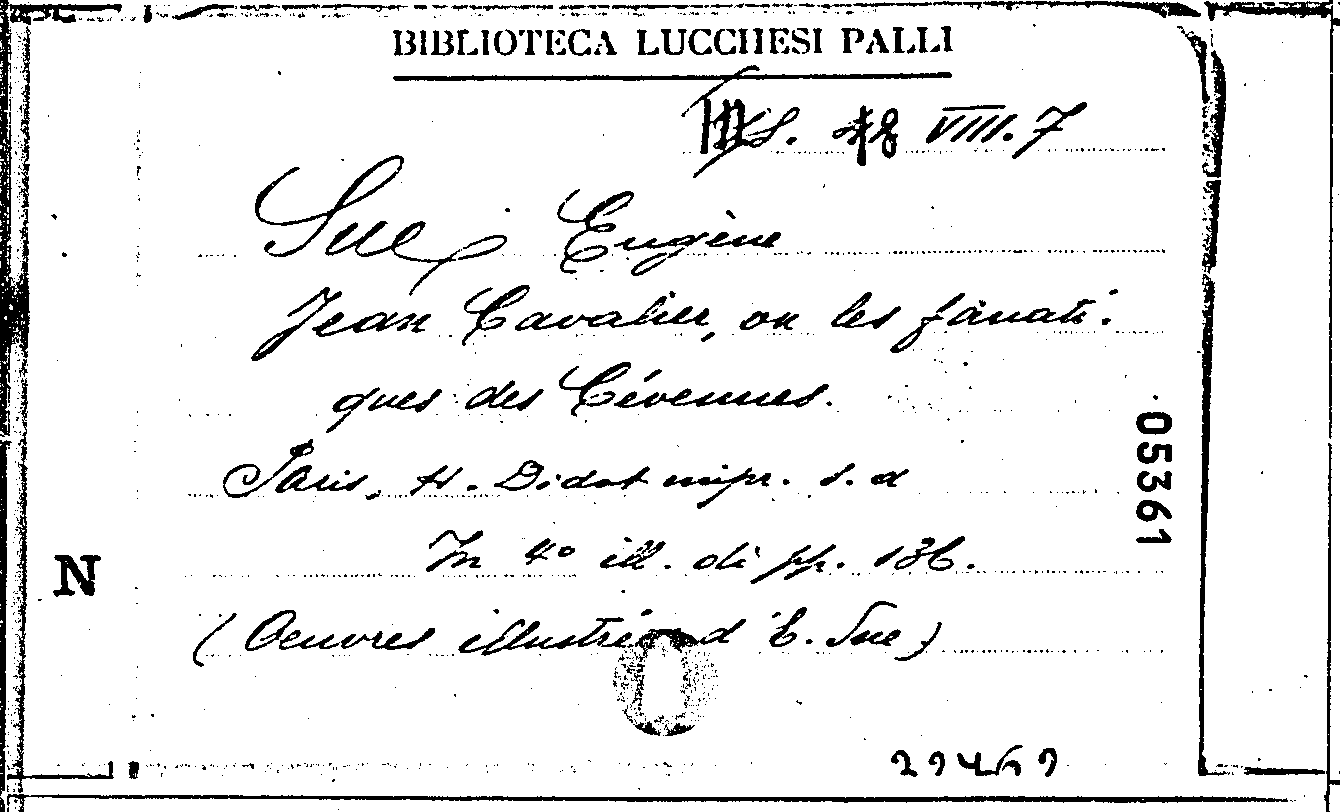 BIBLIOTECA LUCCHESI PALLI
S. 48 VIII. 7
Sue, Eugène
Jean Cavalier, ou les fanati-
ques des Cévennes.
Paris, H. Didot impr. s. d
In 4° ill. di pp. 136.
(Oeuvres illustrées d'E. Sue)
05361
N
29469